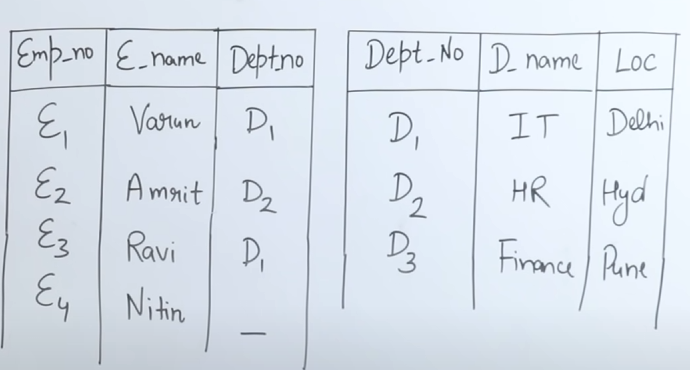 Emp_no E_name Dept_no
E1 Varun D1
E2 Amrit D2
E3 Ravi D1
E4 Nitin —
Dept_No D_name Loc
D1 IT Delhi
D2 HR Hyd
D3 Finance Pune